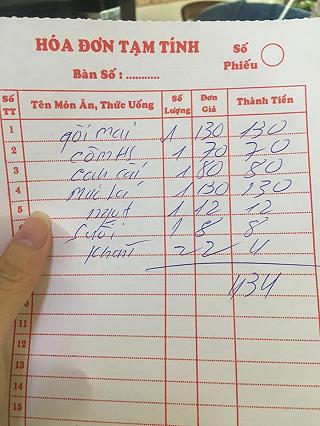 HÓA ĐƠN TẠM TÍNH
Số Phiếu
Bàn Số : ...........
Số TT Tên Món Ăn, Thức Uống Số Lượng Đơn Giá Thành Tiền
1 gỏi mai 1 130 130
2 cơm HS 1 70 70
3 can cải 1 80 80
4 Mực lá 1 130 130
5 ngọt 1 12 12
suối 1 8 8
khăn 2 2 4
434
13
14
15